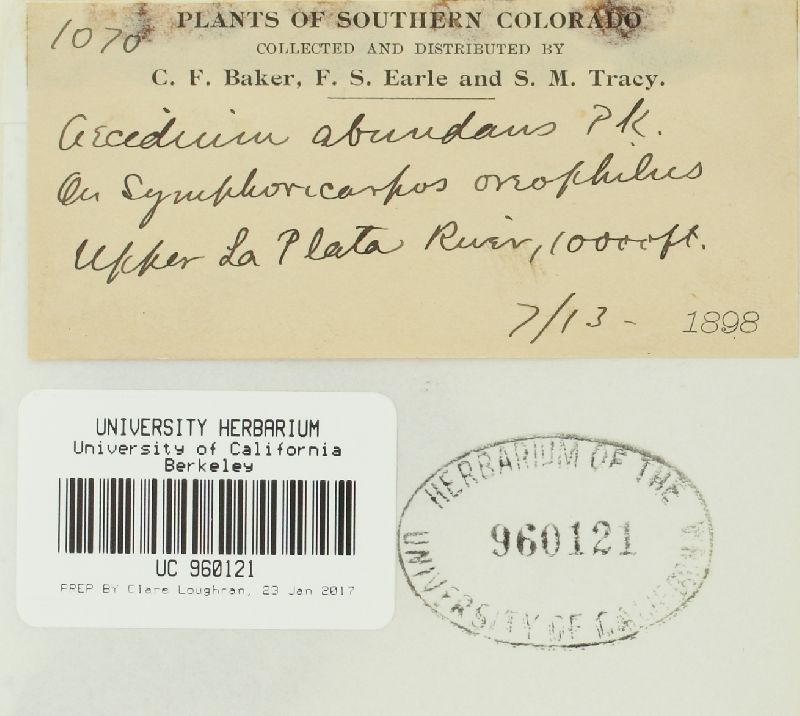 1070
PLANTS OF SOUTHERN COLORADO
COLLECTED AND DISTRIBUTED BY
C. F. Baker, F. S. Earle and S. M. Tracy.
Aecidium abundans Pk.
On Symphoricarpos oreophilus
Upper La Plata River, 10000ft.
7/13 - 1898
UNIVERSITY HERBARIUM
University of California
Berkeley
UC 960121
PREP BY Clare Loughran, 23 Jan 2017
HERBARIUM OF THE
960121
UNIVERSITY OF CALIFORNIA